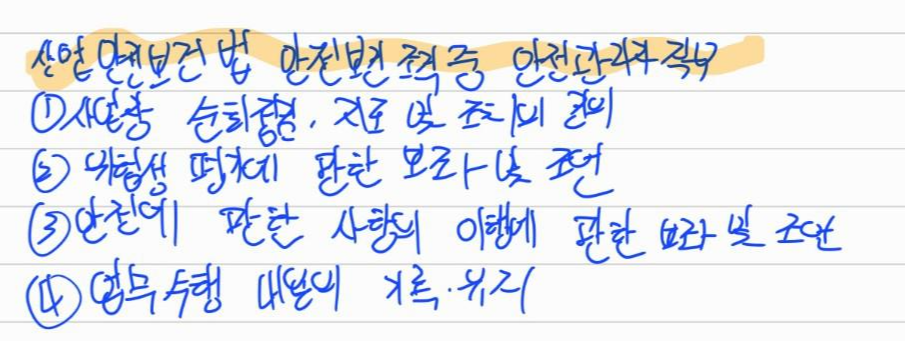 산업안전보건법 안전보건 조직 중 안전관리자 직무
① 사업장 순회점검, 지도 및 조치의 건의
② 위험성 평가에 관한 보좌 및 조언
③ 안전에 관한 사항의 이행에 관한 보좌 및 조언
④ 업무수행 내용의 기록·유지